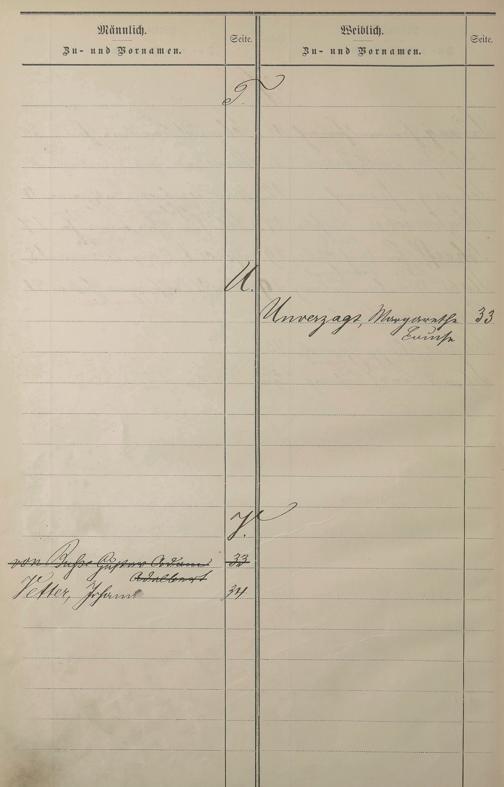 Männlich.
Zu- und Vornamen.
Seite.
Weiblich.
Zu- und Vornamen.
Seite.
T.
U.
Unverzagt, Margarethe 33
Louise
V.
von Gustav Adam 33
Adalbert
Vetter, Johann 34